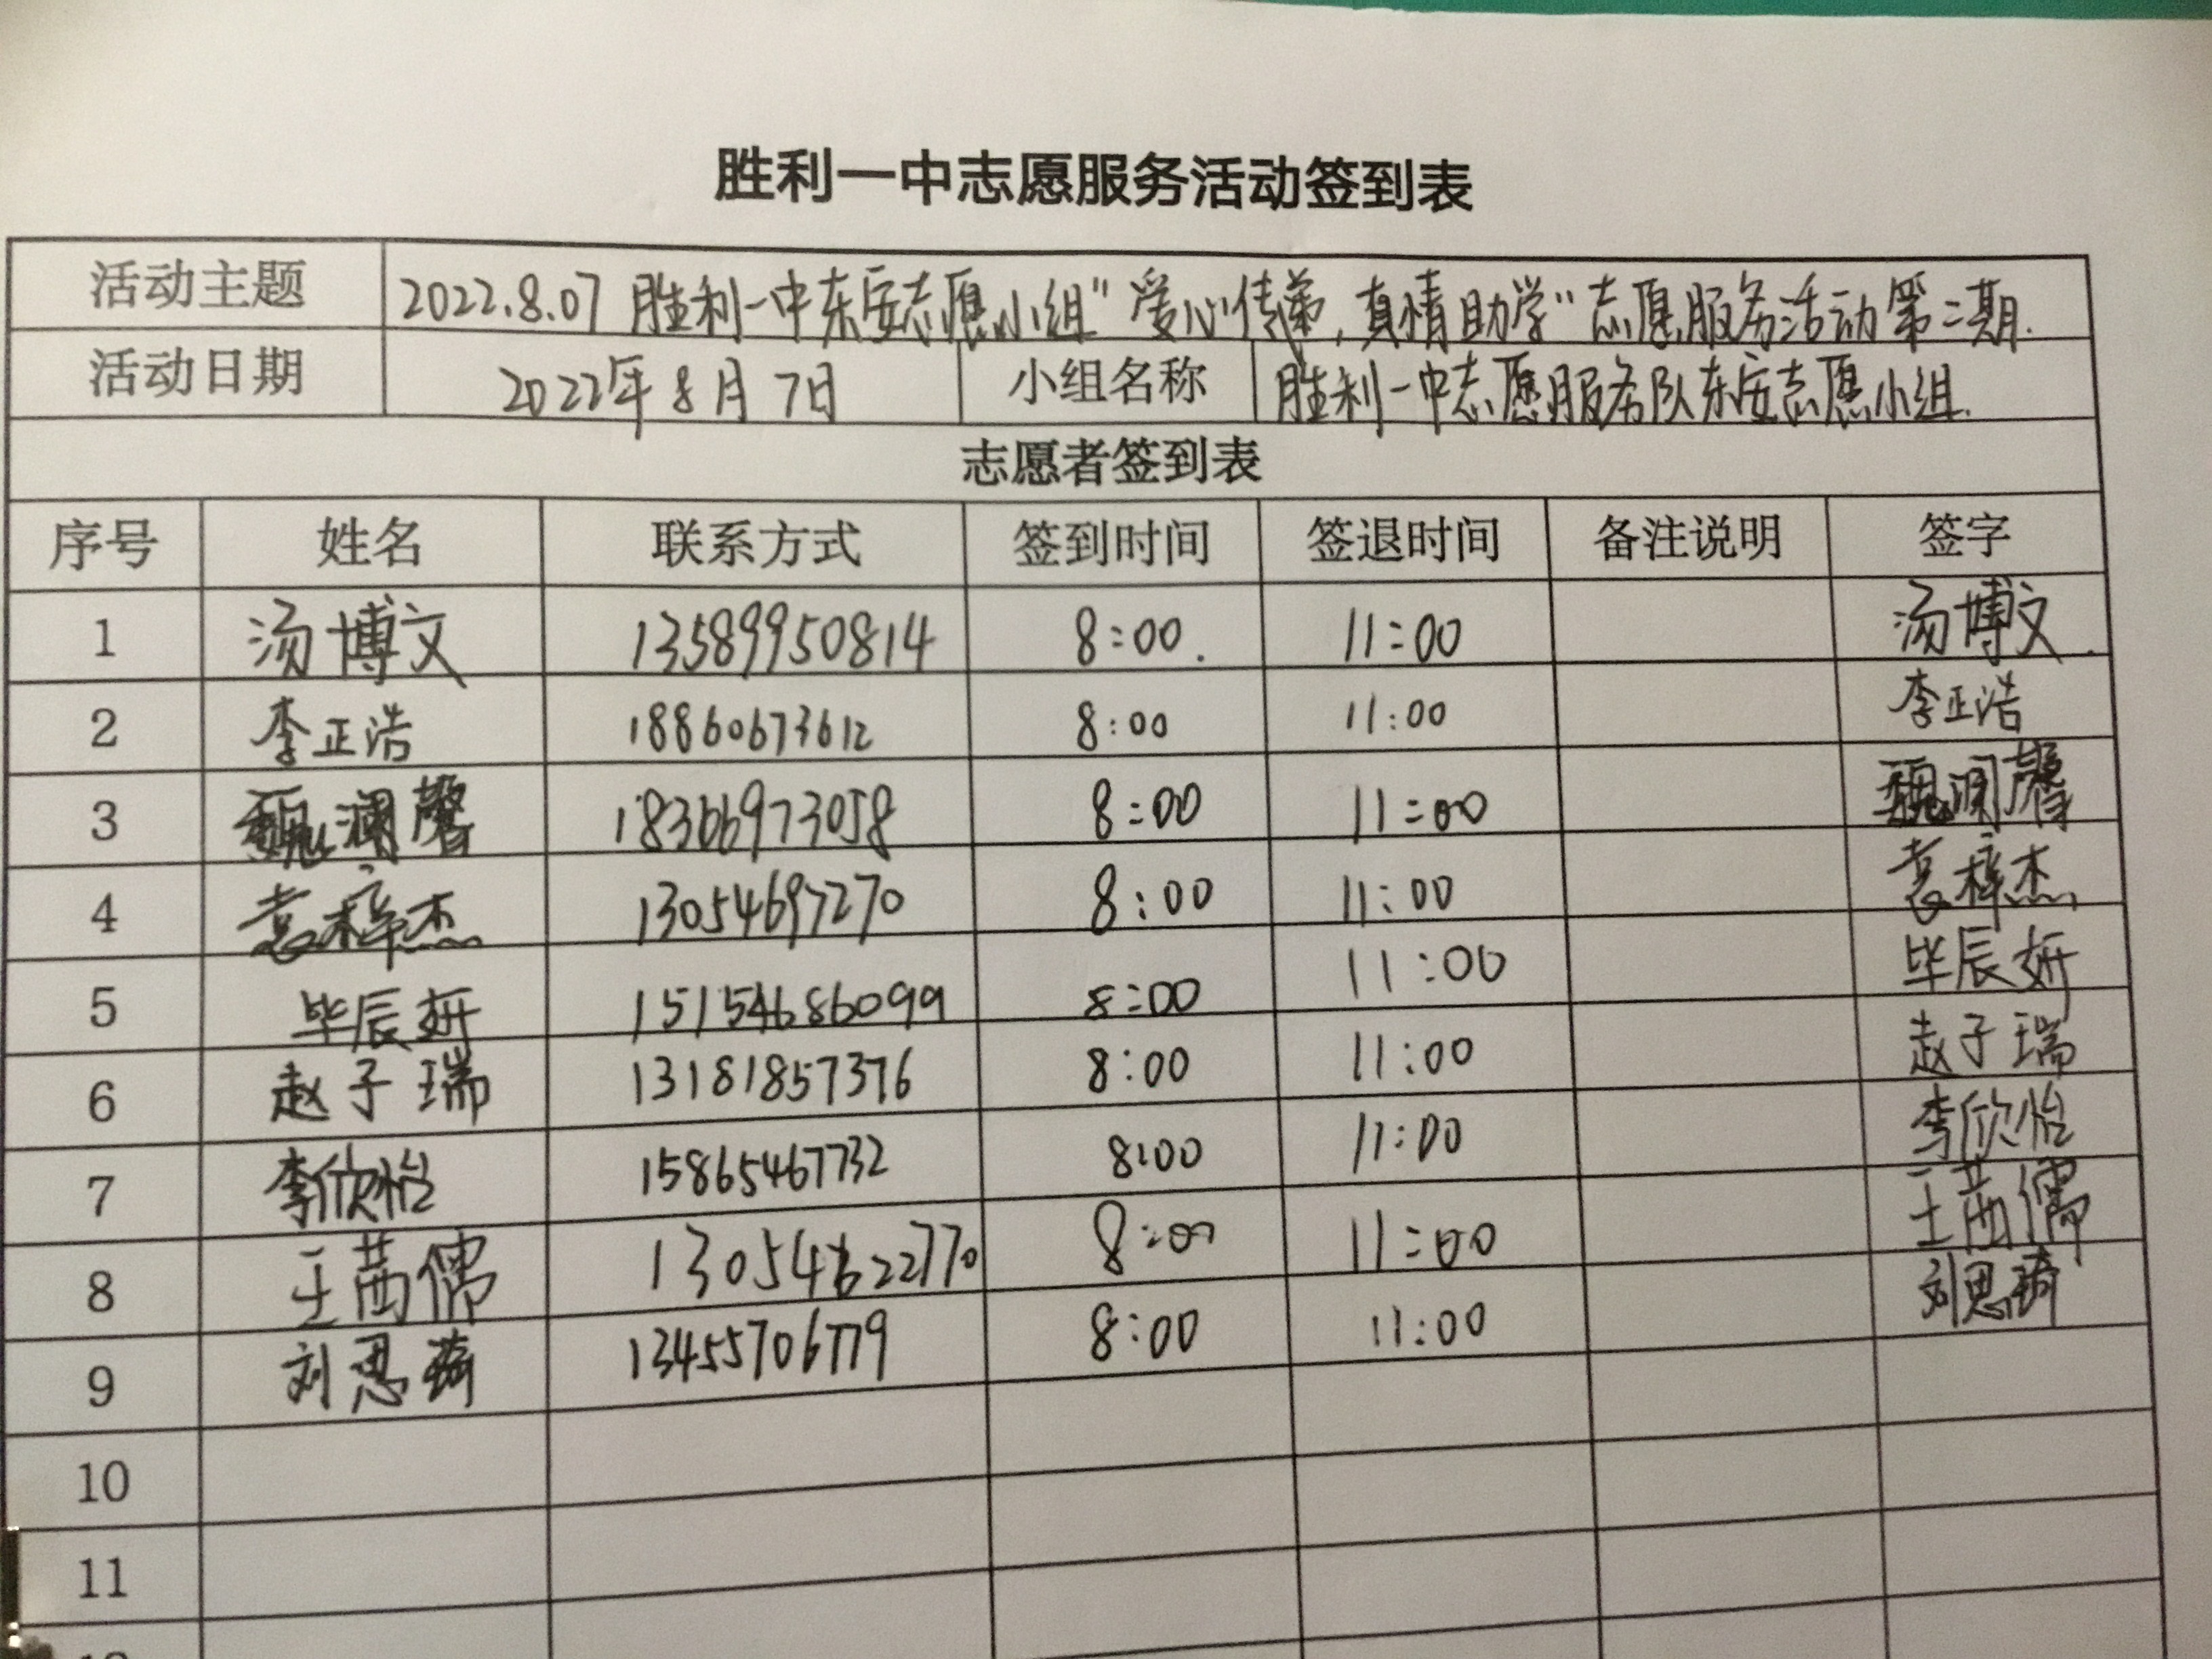 胜利一中志愿服务活动签到表
活动主题 2022.8.07 胜利一中东安志愿小组"爱心传递,真情助学"志愿服务活动第二期.
活动日期 2022年8月7日 小组名称 胜利一中志愿服务队东安志愿小组.
志愿者签到表
序号 姓名 联系方式 签到时间 签退时间 备注说明 签字
1 汤博文 13589950814 8:00. 11:00 汤博文.
2 李正浩 18860673612 8:00 11:00 李正浩
3 魏澜馨 18366973058 8:00 11:00 魏澜馨
4 袁梓杰 13054697270 8:00 11:00 袁梓杰
5 毕辰妍 15154686099 8:00 11:00 毕辰妍
6 赵子瑞 13181857376 8:00 11:00 赵子瑞
7 李欣怡 15865467732 8:00 11:00 李欣怡
8 王茜儒 8:00 11:00 王茜儒
9 刘思琦 13455706779 8:00 11:00 刘思琦
10
11